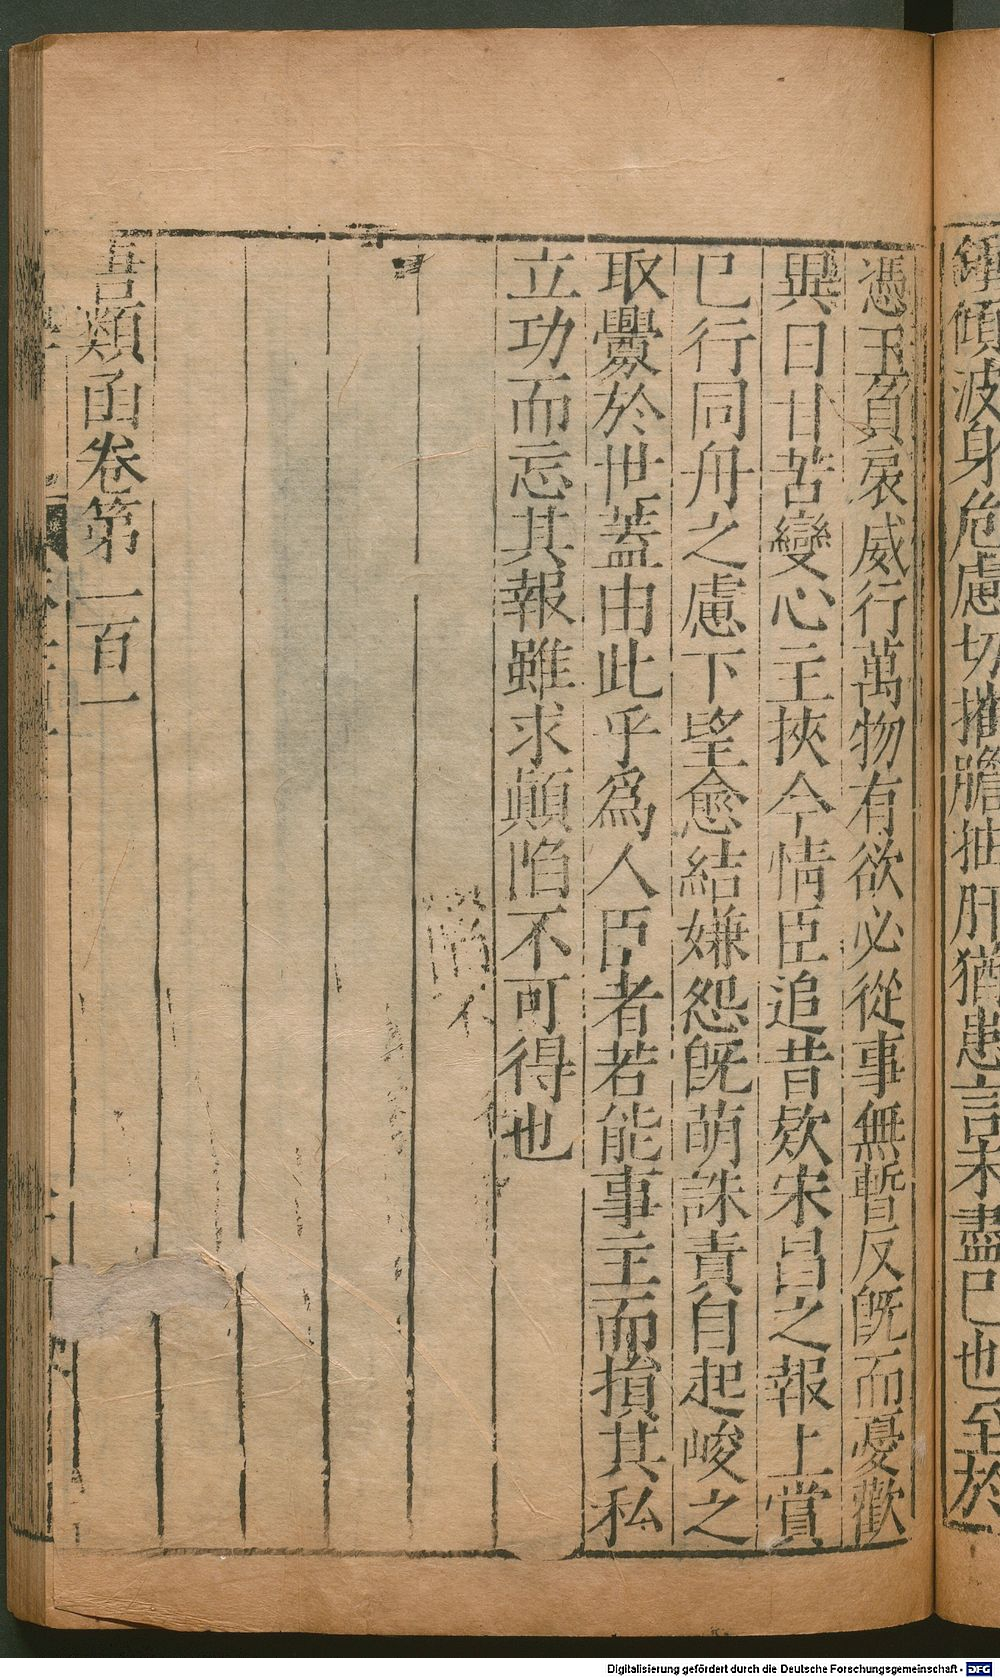 傾波身危慮切摧膽抽肝猶患言未盡已也至於
憑玉負扆威行萬物有欲必從事無暫反旣而憂歡
異日甘苦變心主挾今情臣追昔欵宋昌之報上賞
已行同舟之慮下望愈結嫌怨旣萌誅責自起峻之
取釁於世蓋由此乎爲人臣者若能事主而損其私
立功而忘其報雖求顛陷不可得也
吾類函卷第一百一
Digitalisierung gefördert durch die Deutsche Forschungsgemeinschaft - DFG